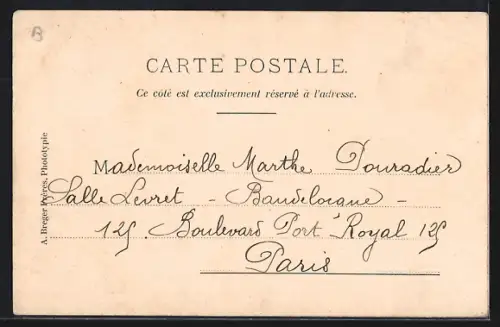 B
CARTE POSTALE.
Ce côté est exclusivement réservé à l'adresse.
A. Breger Frères, Phototypie
Mademoiselle Marthe Douradier
Salle Levret - Baudelocque -
125. Boulevard Port-Royal 125
Paris